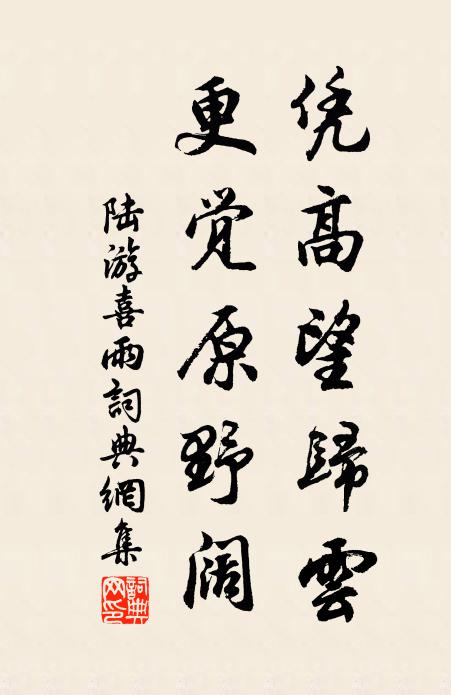 凭高望歸雲
更觉原野阔
陆游喜雨詞典網集
詞典網印